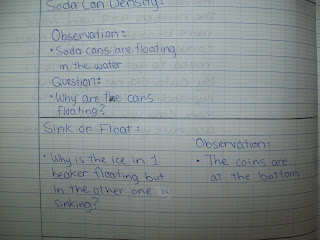 Soda Can Density:
Observation:
• Soda cans are floating
in the water.
Question:
• Why are the cans
floating?
Sink or Float:
• Why is the ice in 1
beaker floating but
in the other one is
sinking?
Observation:
• The coins are
at the bottom